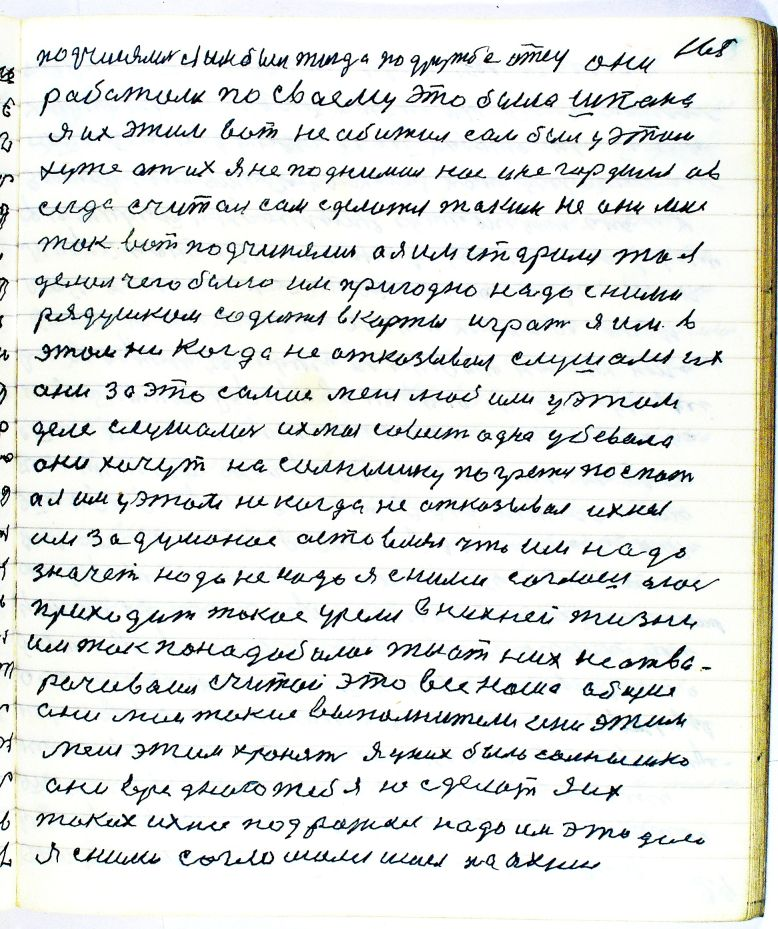 168
подчинялися они были тогда по дружбе отсу они
работали по своему это былла шпана
Я их этим вот не обижил сам был у этим
хуже от их я не поднимал нос и не гордился ов
сегда считал сам сделался таким не они мне
так вот подчинялися а я им старился то я
делал чего было им пригодно надо с ними
рядушком содится в карты играт я им в
этом ни когда не отказывал слушался их
они за это самое меня любили у этом
деле слушался ихтоя совист одна убевала
они хочут на солнышику погретя поспат
а я им у этом не когда не отказывал ихняя
им задуманое оставлял что им надо
значет надо не надо я с ними соглошался
приходит такое уремя в нихней жизни
им так понадобилося ты от них не отва-
рачиваися считой это все наше общие
они мои такие выполнители они этим
меня этим хронят я у них быль солнышко
они вредного тебя не сделоют я их
таких ихнее подражал надо им это дело
Я с ними соглошался шол на ихнии